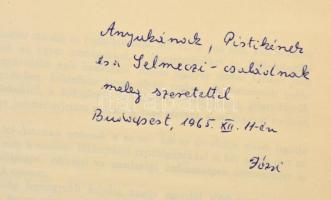 Anyukának, Pistikének
és a Selmeczi-családnak
meleg szeretettel
Budapest, 1965. XII. 11-én
Józsi